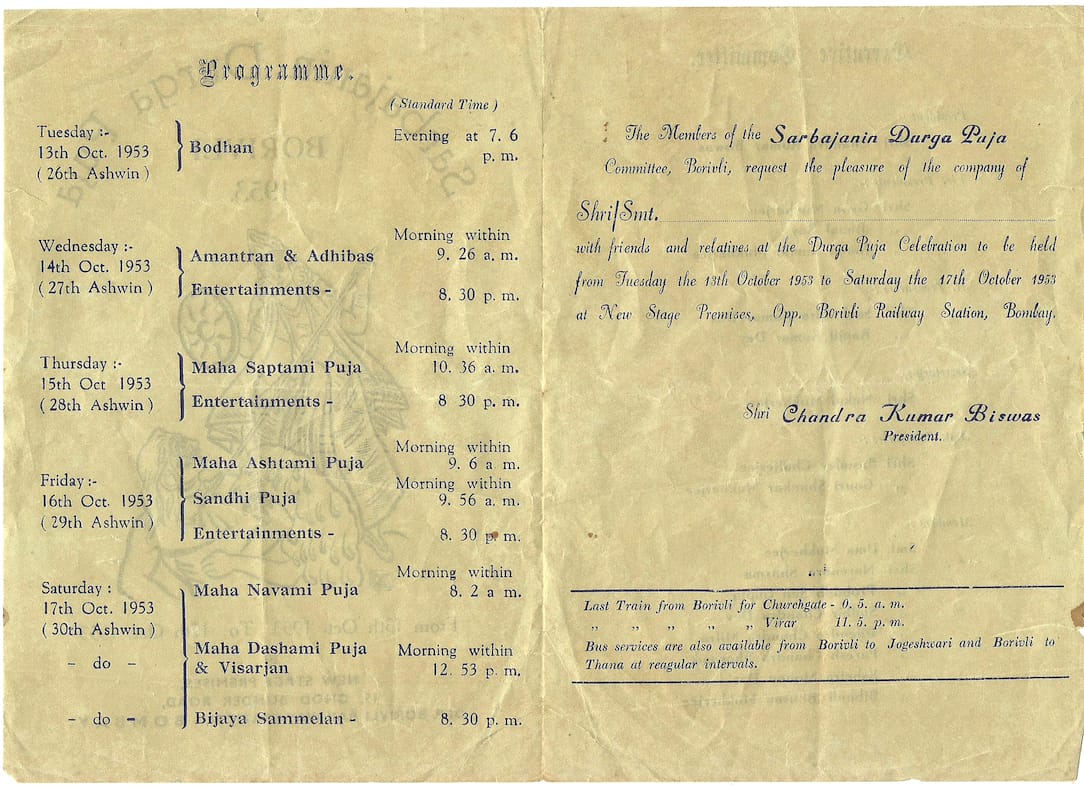 Programme.
( Standard Time )
Tuesday :-
13th Oct. 1953
( 26th Ashwin )
Bodhan
Evening at 7. 6
p. m.
Wednesday :-
14th Oct. 1953
( 27th Ashwin )
Amantran & Adhibas
Morning within
9. 26 a. m.
Entertainments -
8. 30 p. m.
Thursday :-
15th Oct 1953
( 28th Ashwin )
Maha Saptami Puja
Morning within
10. 36 a. m.
Entertainments -
8 30 p. m.
Friday :-
16th Oct. 1953
( 29th Ashwin )
Maha Ashtami Puja
Morning within
9. 6 a m.
Sandhi Puja
Morning within
9. 56 a. m.
Entertainments -
8. 30 p. m.
Saturday :
17th Oct. 1953
( 30th Ashwin )
Maha Navami Puja
Morning within
8. 2 a m.
- do -
Maha Dashami Puja
& Visarjan
Morning within
12. 53 p. m.
- do -
Bijaya Sammelan -
8. 30 p. m.
The Members of the Sarbajanin Durga Puja
Committee, Borivli, request the pleasure of the company of
Shri/Smt.
with friends and relatives at the Durga Puja Celebration to be held
from Tuesday the 13th October 1953 to Saturday the 17th October 1953
at New Stage Premises, Opp. Borivli Railway Station, Bombay.
Shri Chandra Kumar Biswas
President.
Last Train from Borivli for Churchgate - 0. 5. a. m.
„ „ „ „ „ Virar 11. 5. p. m.
Bus services are also available from Borivli to Jogeshwari and Borivli to
Thana at reagular intervals.